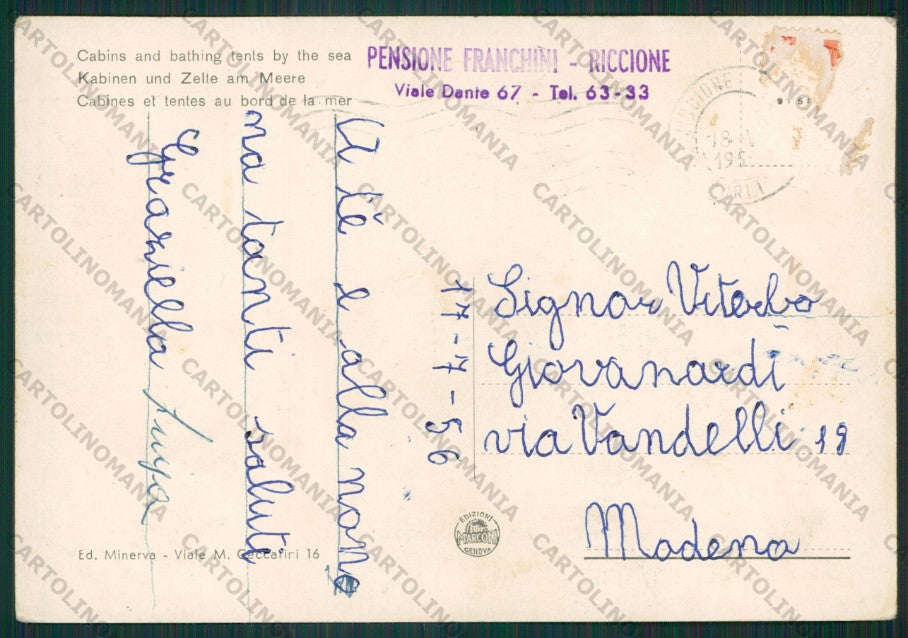 Cabins and bathing tents by the sea
Kabinen und Zelte am Meere
Cabines et tentes au bord de la mer
PENSIONE FRANCHINI - RICCIONE
Viale Dante 67 - Tel. 63-33
A tè e alla non
na tanti saluti
Graziella Luisa
17-7-56
Signor Viterbo
Giovanardi
via Vandelli 19
Modena
EDIZIONI
MARCONI
GENOVA
Ed. Minerva - Viale M. Ceccarini 16
CARTOLINOMANIA